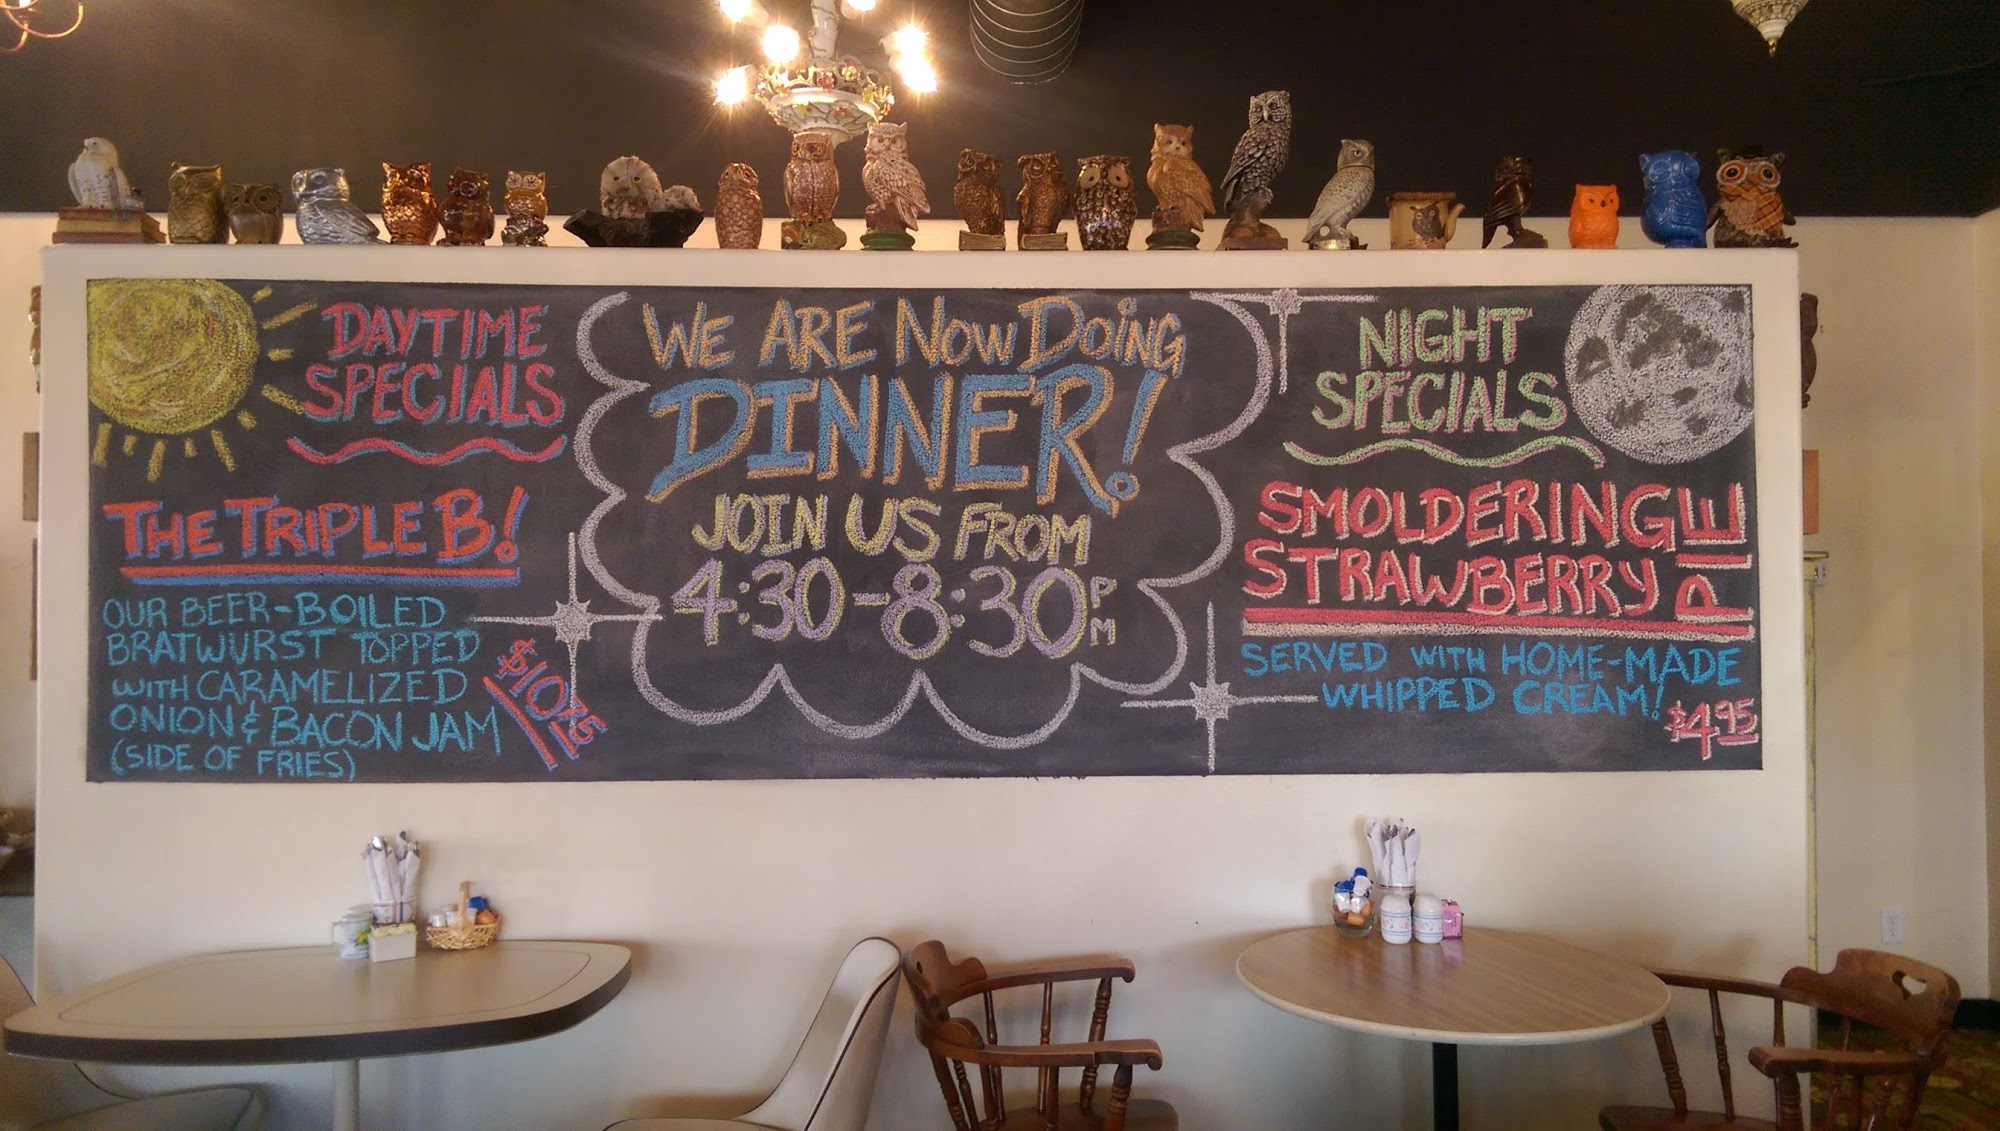 DAYTIME
SPECIALS
THE TRIPLE B!
OUR BEER-BOILED
BRATWURST TOPPED
WITH CARAMELIZED
ONION & BACON JAM
(SIDE OF FRIES)
$10.75
WE ARE NOW DOING
DINNER!
JOIN US FROM
4:30-8:30 PM
NIGHT
SPECIALS
SMOLDERING
STRAWBERRY
PIE
SERVED WITH HOME-MADE
WHIPPED CREAM!
$4.95